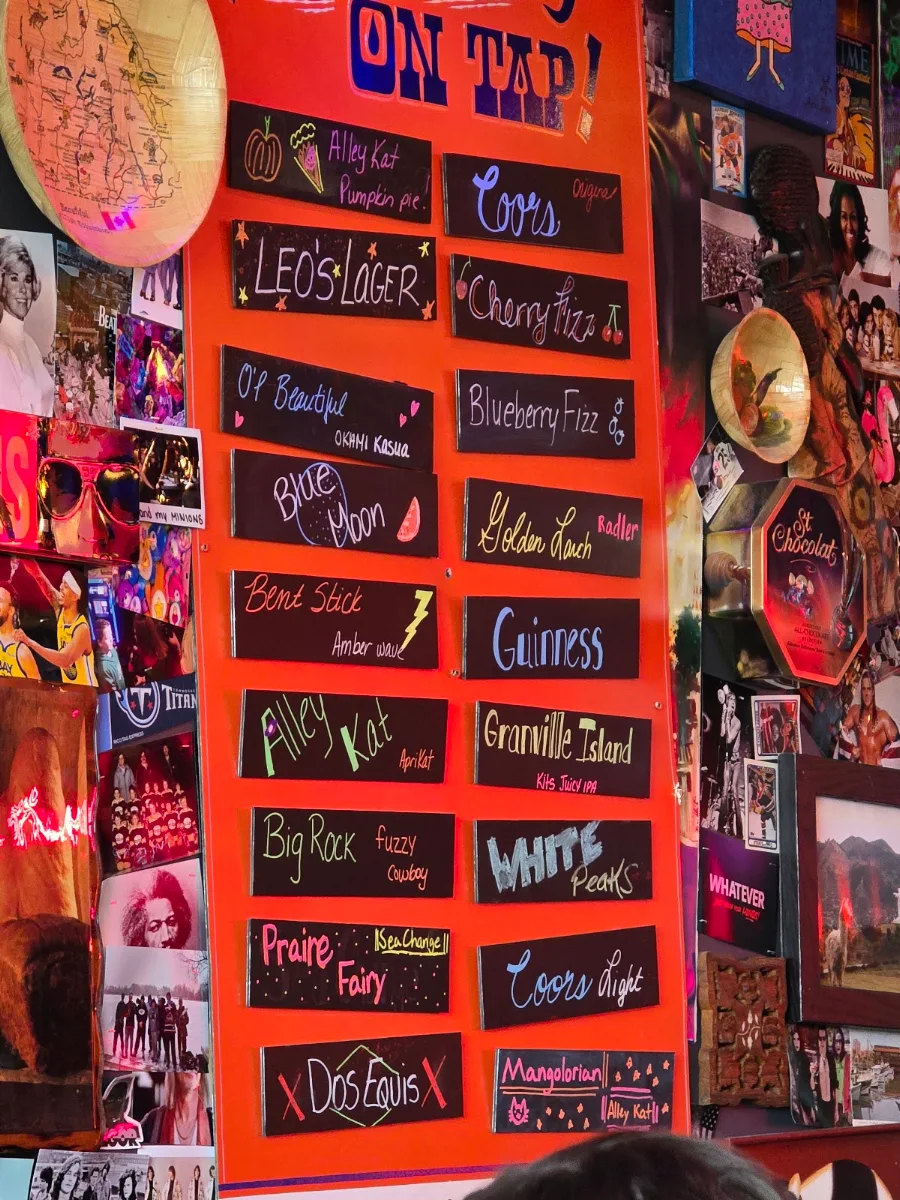 ON TAP!
Alley Kat
Pumpkin pie!
LEO'S LAGER
O'l Beautiful
OKAMI KASUA
Blue
Moon
Bent Stick
Amber wave
Alley
Kat
AprіKat
Big Rock
fuzzy
Cowboy
Praire
Sea Change
Fairy
Dos Equis
Coors
Original
Cherry Fizz
Blueberry Fizz
Golden Lauch
Radler
Guinness
Granville Island
Kits Juicy IPA
WHITE
Peaks
Coors Light
Mangolorian
Alley Kat
Beautiful
and my MINIONS
TITAN
TIME
St
Chocolat
WHATEVER